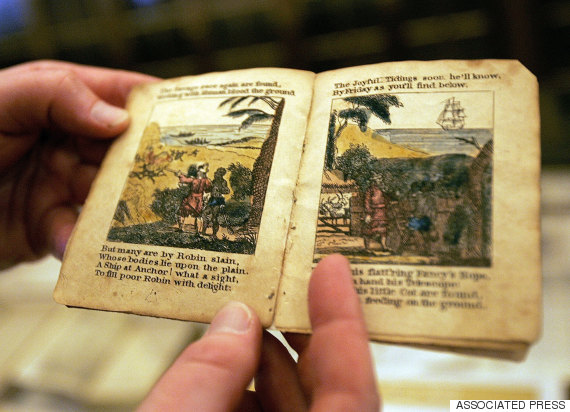 The Savage once again are found,
With human blood the ground
But many are by Robin slain,
Whose bodies lie upon the plain.
A Ship at Anchor! what a sight,
To fill poor Robin with delight:
The Joyful Tidings soon he'll know,
By Friday as you'll find below.
his flatt'ring Fancy's Hope,
hand his Telescope
his little Cot are found,
feeding on the ground.
ASSOCIATED PRESS